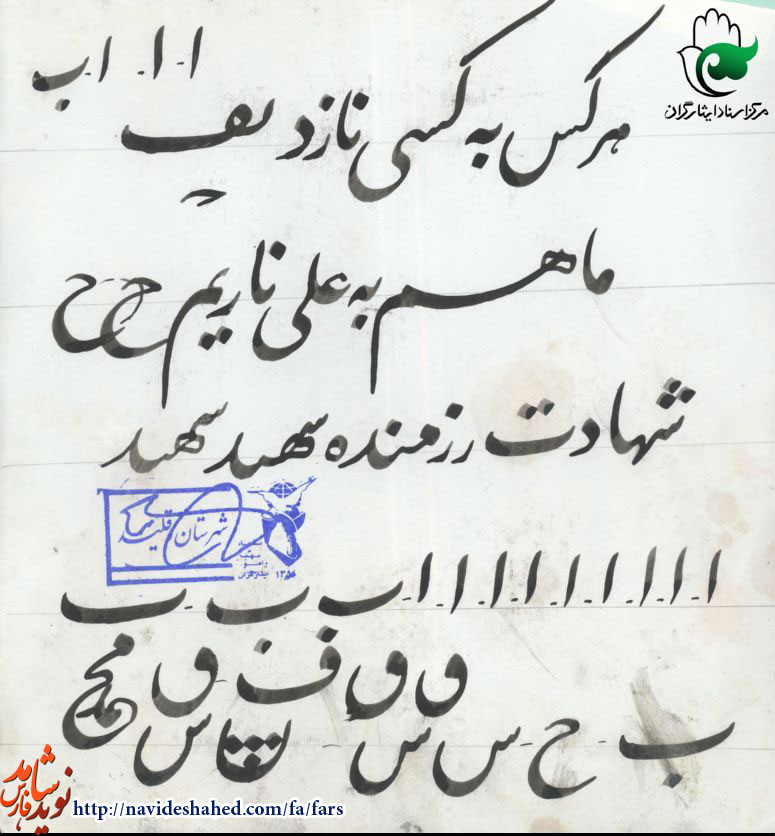 مرکز اسناد ایثارگران
ا ا. اب
هر کس به کسی نازد
ما هم به علی نازیم ح ح
شهادت رزمنده شهید شهید
شهرستان
ا.ا.ا.ا.ا.ا.ا.اب ب ب
و و ف ق
ب ح س س نقاش
نوید شاهد
فارس
http://navideshahed.com/fa/fars